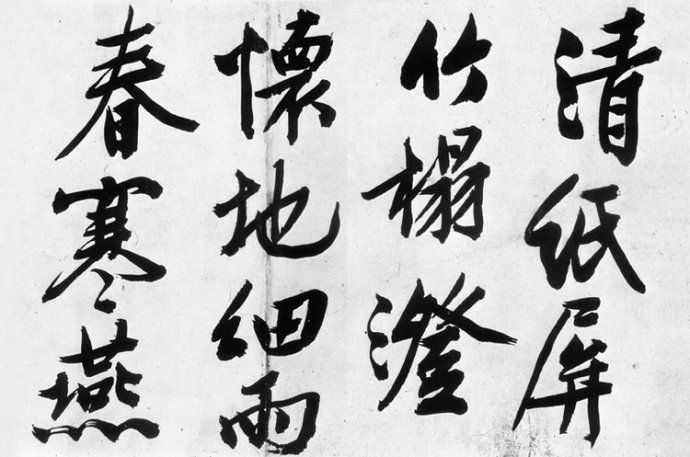 清紙屏
竹榻澄
懷地細雨
春寒燕